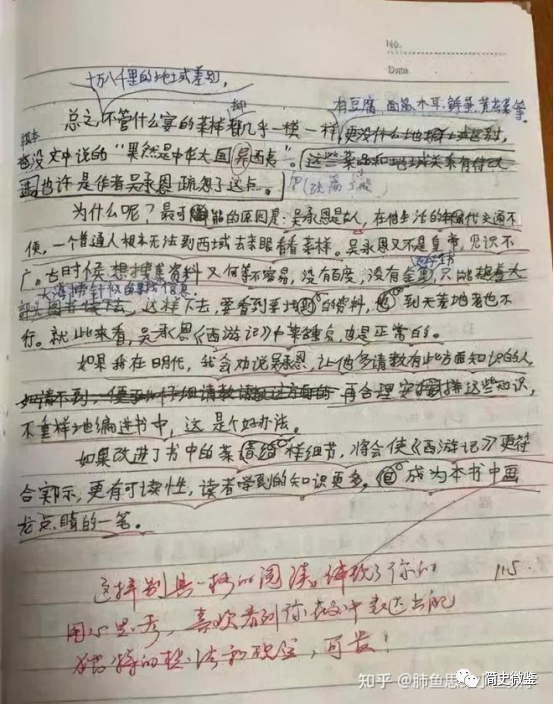 No.
Date
十万八千里的地域差别,
有豆腐 面筋 木耳 鲜笋 黄花菜等。
总之,不管什么宴的菜样都几乎一模一样,更没什么地域区别,
根本
也没文中说的“果然是中华大国 异西夷”。这些菜品和地域关系有待改
进 也许是作者吴承恩疏忽了这点。
为什么呢?最可能的原因是:吴承恩是古人,在他生活的明代交通不
便,一个普通人根本无法到西域去亲眼看看菜样。吴承恩又不是皇帝,见识不
广。古时候想搜集资料又何等不容易,没有百度,没有
大海捞针似的 信息,
这样下去,要看到某地的资料,到天荒地老也不
行。就此来看,吴承恩《西游记》中菜重复,也是正常的。
如果我在明代,我会劝说吴承恩,让他多请教有此方面知识的人,
再合理安排这些知识,
不重样地编进书中,这是个好办法。
如果改进了书中的菜 样细节,将会使《西游记》更符
合实际,更有可读性,读者学到的知识更多,成为本书中画
龙点睛的一笔。
这样别具一格的阅读,体现了你的
用心思考,喜欢看到你在文中表达出的
独特的想法和观点,可贵!
11.5
知乎 @肺鱼思
简史微鉴